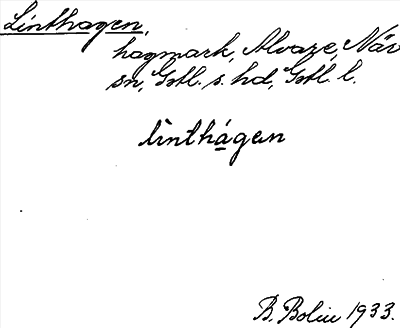 Linthagen,
hagmark, Alvare, När
sn, Gotl. s. hd, Gotl. l.
lìnthá̱gen
B. Bolin 1933.